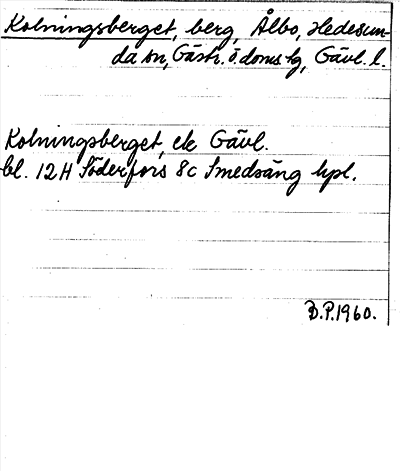 Kolningsberget, berg, Ålbo, Hedesun-
da sn, Gästr. ö. doms lg, Gävl. l.
Kolningsberget, ek Gävl.
bl. 12H Söderfors 8c Smedsäng hpl.
B.P. 1960.